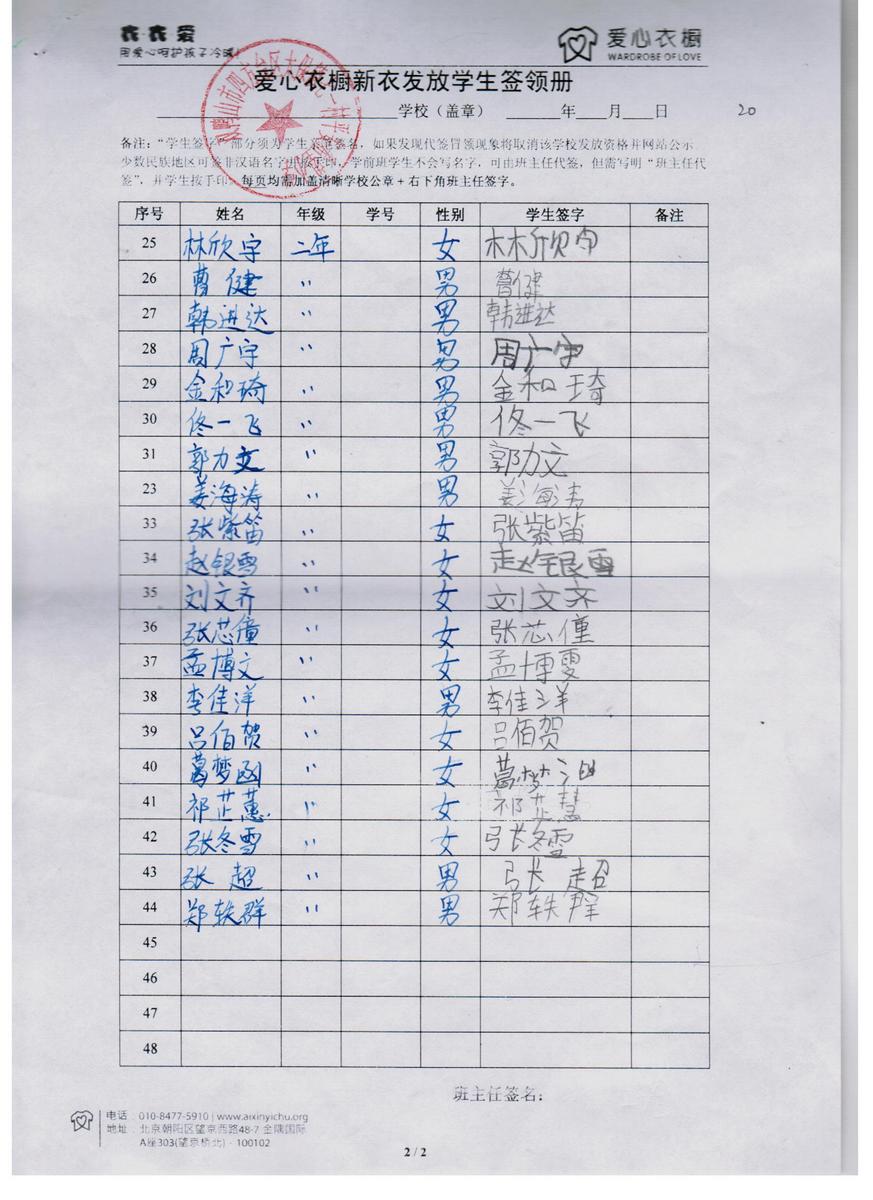 衣衣爱
用爱心呵护孩子冷暖!
爱心衣橱
WARDROBE OF LOVE
爱心衣橱新衣发放学生签领册
学校（盖章） 年 月 日 20
备注：“学生签字”部分须为学生亲笔签名，如果发现代签冒领现象将取消该学校发放资格并网站公示
少数民族地区可签非汉语名字并按手印，学前班学生不会写名字，可由班主任代签，但需写明“班主任代
签”，并学生按手印。每页均需加盖清晰学校公章+右下角班主任签字。
序号 姓名 年级 学号 性别 学生签字 备注
25 林欣宇 二年 女 林欣宇
26 曹健 〃 男 曹健
27 韩进达 〃 男 韩进达
28 周广宇 〃 男 周广宇
29 金和琦 〃 男 金和琦
30 佟一飞 〃 男 佟一飞
31 郭力文 〃 男 郭力文
23 姜海涛 〃 男 姜海涛
33 张紫笛 〃 女 张紫笛
34 赵银雪 〃 女 赵银雪
35 刘文齐 〃 女 刘文齐
36 张芯僮 〃 女 张芯僮
37 孟博文 〃 女 孟博雯
38 李佳洋 〃 男 李佳洋
39 吕佰贺 〃 女 吕佰贺
40 葛梦函 〃 女 葛梦涵
41 祁芷蕙 〃 女 祁芷慧
42 张冬雪 〃 女 张冬雪
43 张超 〃 男 张超
44 郑轶群 〃 男 郑轶群
45
46
47
48
班主任签名：
电话：010-8477-5910 | www.aixinyichu.org
地址：北京朝阳区望京西路48-7 金隅国际
A座303(望京桥北)·100102
2 / 2